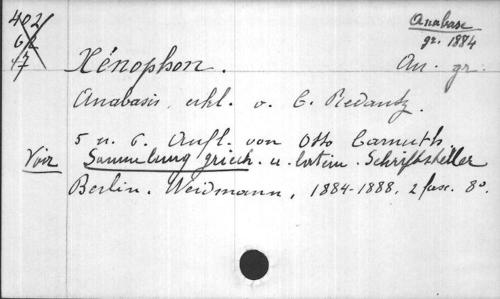 402
62
47
Anabase
gr. 1884
Xénophon. An. gr.
Anabasis, erkl. v. C. Redantz.
5 u. 6. Aufl. von Otto Carnuth
Voir Sammlung griech. u. latein. Schriftsteller
Berlin. Weidmann, 1884-1888, 2 fasc. 8o.